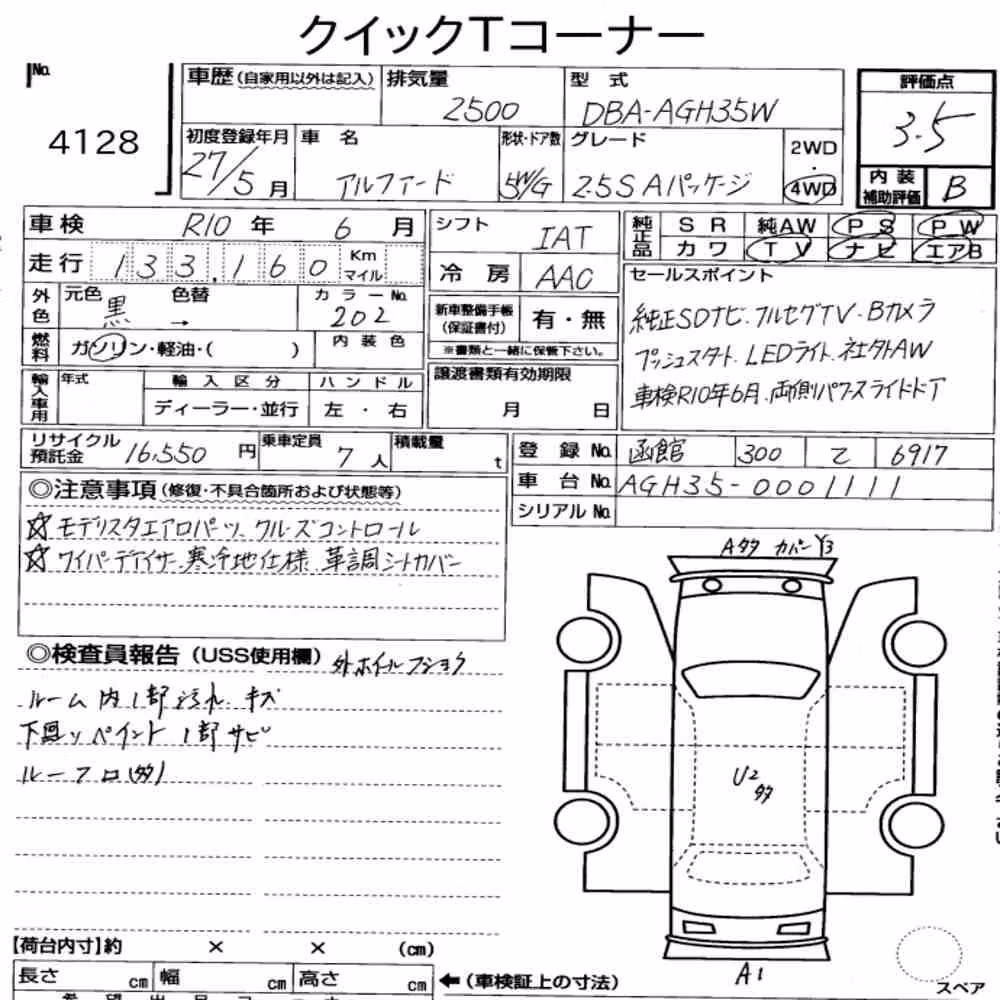 クイックTコーナー
No. 4128
車歴(自家用以外は記入)
排気量 2500
型式 DBA-AGH35W
評価点 3.5
初度登録年月 27/5月
車名 アルファード
形状・ドア数 5W/G
グレード 2.5S Aパッケージ
2WD・4WD
内装補助評価 B
車検 R10年 6月
シフト IAT
純正品 SR 純AW PS PW
カワ TV ナビ エアB
走行 133,160 Km マイル
冷房 AAC
セールスポイント
純正SDナビ.フルセグTV・Bカメラ
プッシュスタート.LEDライト.社外AW
車検R10年6月.両側パワースライドドア
外色 元色 黒 → 色替
カラーNo. 202
新車整備手帳(保証書付) 有・無
※書類と一緒に保管下さい。
燃料 ガソリン・軽油・( )
内装色
輸入車用 年式
輸入区分 ディーラー・並行
ハンドル 左・右
譲渡書類有効期限
月 日
リサイクル預託金 16,550円
乗車定員 7人
積載量 t
登録No. 函館 300 て 6917
車台No. AGH35-0001111
シリアルNo.
◎注意事項(修復・不具合箇所および状態等)
☆モデリスタエアロパーツ.クルーズコントロール
☆ワイパーデアイサー.寒冷地仕様.革調シートカバー
◎検査員報告(USS使用欄) 外ホイル フショク
ルーム内1部汚れ.キズ
下廻りペイント 1部サビ
ルーフ凹(多)
A多 カバーY3
U2
多
A1
スペア
【荷台内寸】約 × × (cm)
長さ cm 幅 cm 高さ cm
←(車検証上の寸法)